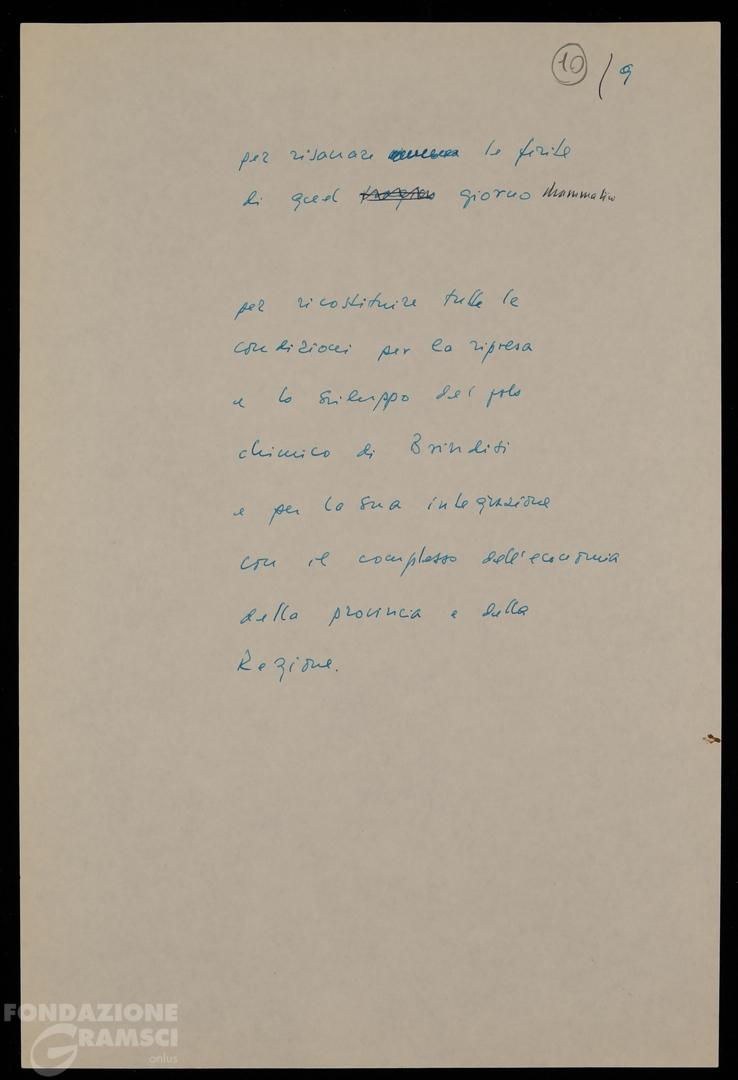 10 / 9
per risanare le ferite
di quel giorno drammatico
per ricostituire tutte le
condizioni per la ripresa
e lo sviluppo del polo
chimico di Brindisi
e per la sua integrazione
con il complesso dell'economia
della provincia e della
Regione.
FONDAZIONE
GRAMSCI
onlus